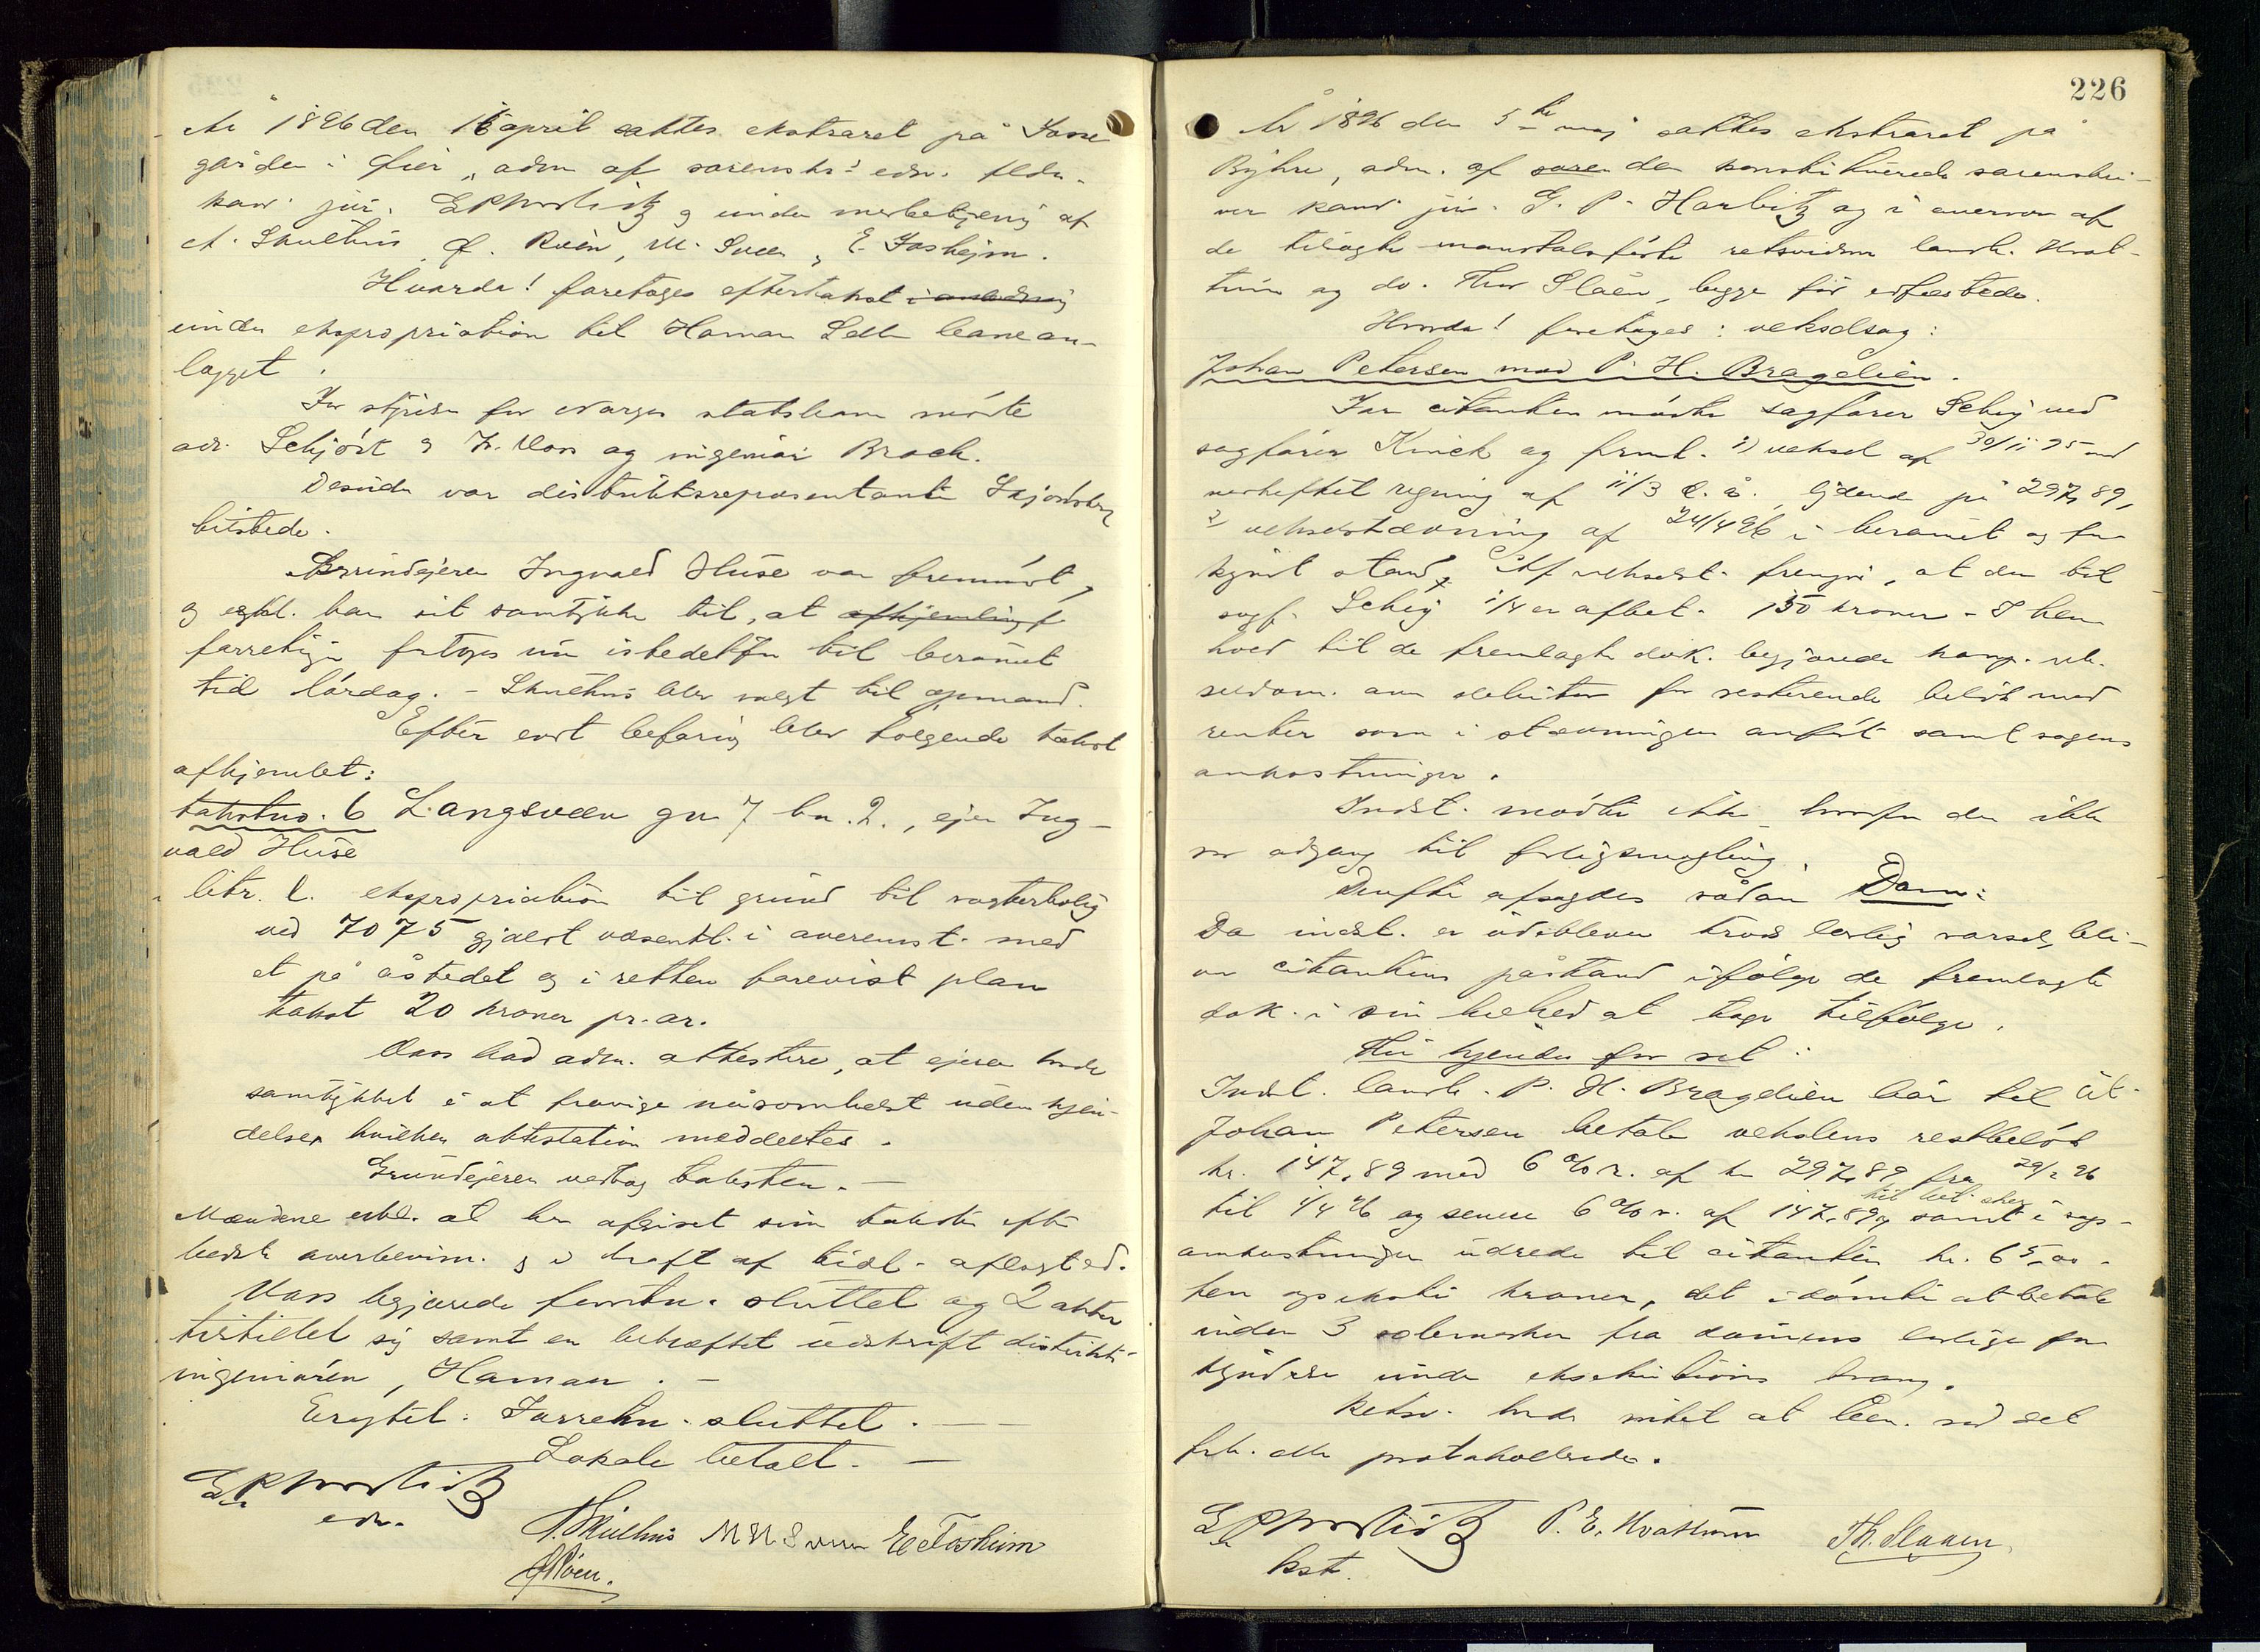 År 1896 den 16 april sattes ekstraret på Tosse
gården i Øier, adm af sorenskr's edsv. fldm.
kand. jur. G P Harbitz og under medbetjening af
A. Skulhus, O. Roen, M. Sveen, E. Fosheim.
Hvorda! foretoges eftertakst i anledning
under ekspropriation til Hamar Sell baneanlægget.
For styrelsen for Norges statsbaner mødte
adv. Schjödt & H. Voss og ingeniør Broch.
Desuden var distriktsrepresentanten
tilstede.
Grundejeren Ingvald Huse var fremmødt,
og erkl. han sit samtykke til, at afhjemling f
forretnings foretoges nu istedetfor til berammet
tid lørdag. - Skulhus blev valgt til opmand.
Efter endt befaring blev følgende takst
afhjemlet:
takstno. 6 Langsveen gn 7 bn. 2., ejer Ing-
vald Huse
litr. l. ekspropriation til grund til vogterbolig
ved 7075 gjæld væsentl. i overenst. med
et på åstedet og i retten forevist plan
takst 20 kroner pr. ar.
Voss bad adm. attestere, at ejeren havde
samtykket i at fravige nåsomhelst uden kjen-
delse, hvilken attestation meddeltes.
Grundejeren vedtog taksten. -
Mændene erkl. at ha afgivet sin takst efter
bedste overbevisn. og i kraft af tidl. aflagt ed.
Voss begjærede forretn. sluttet og 2 akter
tilstillet sig samt en bekræftet udskrift distrikts-
ingeniøren, Hamar. -
Eragtet: Forretn. sluttet. -
Lokale betalt. -
G P Harbitz
edsv.
A. Skulhus M N Sveen E Fosheim
O Roen.
226
År 1896 den 5te maj sattes ekstraret på
Byhre, adm. af soren den konstituerede sorenskri-
ver kand. jur. G. P. Harbitz og i overvær af
de tilsagte manntalsførte retsvidner landh. Kvat-
tum og do. Thor Slåen, begge før edfæstede.
Hvorda! foretoges: vekselsag:
Johan Petersen mod P. H. Bragelien.
For citanten mødte sagfører Scheij ved
sagfører Kinck og freml. 1) veksel af 30/11 95 med
vedheftet regning af 11/3 d. å. lydende på 297,89,
2) vekselstævning af 24/4 96 i berammet og for-
kyndt stand. Af vekselst. fremgår, at der til
sagf. Scheij 1/4 er afbet. 150 kroner. - I hen-
hold til de fremlagte dok. begjærede komp. vek-
seldom. over debitor for resterende beløb med
renter som i stævningen anført samt sagens
omkostninger.
Indst. mødte ikke hvorfor der ikke
var adgang til forligsmægling.
Derefter afsagdes sådan Dom:
Da indst. er udebleven trods lovlig varsel, bli-
ver citantens påstand ifølge de fremlagte
dok. i sin helhed at tage tilfølge.
Thi kjendes for ret:
Indst. landh. P. H. Bragelien bør til cit.
Johan Petersen betale vekslens restbeløb
kr. 147,89 med 6 % r. af kr 297,89 fra 29/2 96
til 1/4 96 og senere 6 % r. af 147,89 til bet. sker samt i sags-
omkostninger udrede til citanten kr. 65,00 -
fem og seksti kroner, det idømte at betale
inden 3 solemerker fra dommens lovlige for-
kyndelse under eksekutions tvang.
Retsv. havde intet at bem. ved det
frk. eller protokollerede.
G P Harbitz P. E. Kvattum Th. Slaaen
kst.